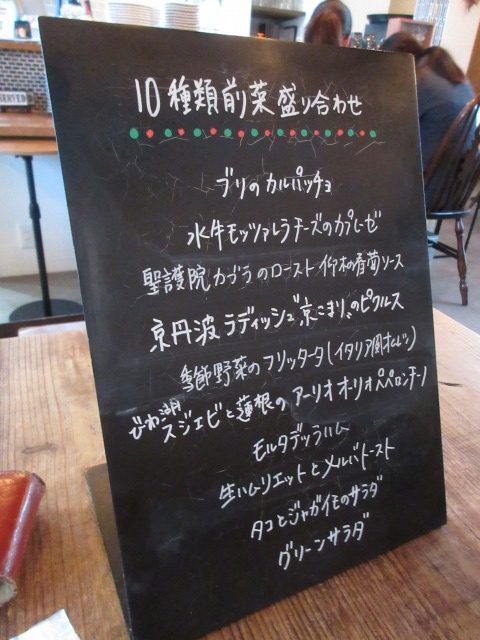 10種類前菜盛り合わせ
ブリのカルパッチョ
水牛モッツァレラチーズのカプレーゼ
聖護院カブラのロースト 仰木の香菊ソース
京丹波ラディッシュ"京こまり"のピクルス
季節野菜のフリッタータ(イタリア風オムレツ)
びわ湖スジエビと蓮根のアーリオオーリオペペロンチーノ
モルタデッラハム
生ハムリエットとメルバトースト
タコとジャガイモのサラダ
グリーンサラダ